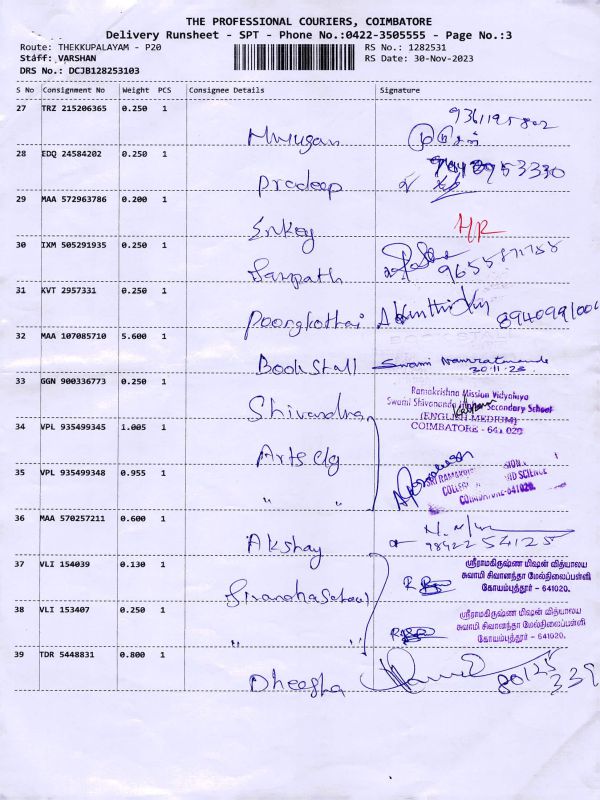 THE PROFESSIONAL COURIERS, COIMBATORE
Delivery Runsheet - SPT - Phone No.:0422-3505555 - Page No.:3
Route: THEKKUPALAYAM - P20 RS No.: 1282531
Staff: VARSHAN RS Date: 30-Nov-2023
DRS No.: DCJB128253103
S No Consignment No Weight PCS Consignee Details Signature
27 TRZ 215206365 0.250 1
Murugan
28 EDQ 24584202 0.250 1
Pradeep
29 MAA 572963786 0.200 1
Enkey HR
30 IXM 505291935 0.250 1
Sampath 9655871788
31 KVT 2957331 0.250 1
Poongkothai
32 MAA 107085710 5.600 1
Book Stall Swami
33 GGN 900336773 0.250 1
Ramakrishna Mission Vidyalaya
Swami Shivananda Secondary School
(ENGLISH MEDIUM)
COIMBATORE - 641 020
34 VPL 935499345 1.005 1
Arts Clg
35 VPL 935499348 0.955 1
" "
SRI RAMAKRISHNA MISSION
COLLEGE AND SCIENCE
COIMBATORE-641020.
36 MAA 570257211 0.600 1
Akshay 9842254125
37 VLI 154039 0.130 1
ஸ்ரீராமகிருஷ்ண மிஷன் வித்யாலய
சுவாமி சிவானந்தா மேல்நிலைப்பள்ளி
கோயம்புத்தூர் - 641020.
38 VLI 153407 0.250 1
" "
ஸ்ரீராமகிருஷ்ண மிஷன் வித்யாலய
சுவாமி சிவானந்தா மேல்நிலைப்பள்ளி
கோயம்புத்தூர் - 641020.
39 TDR 5448831 0.800 1
Dheesha 80125
339